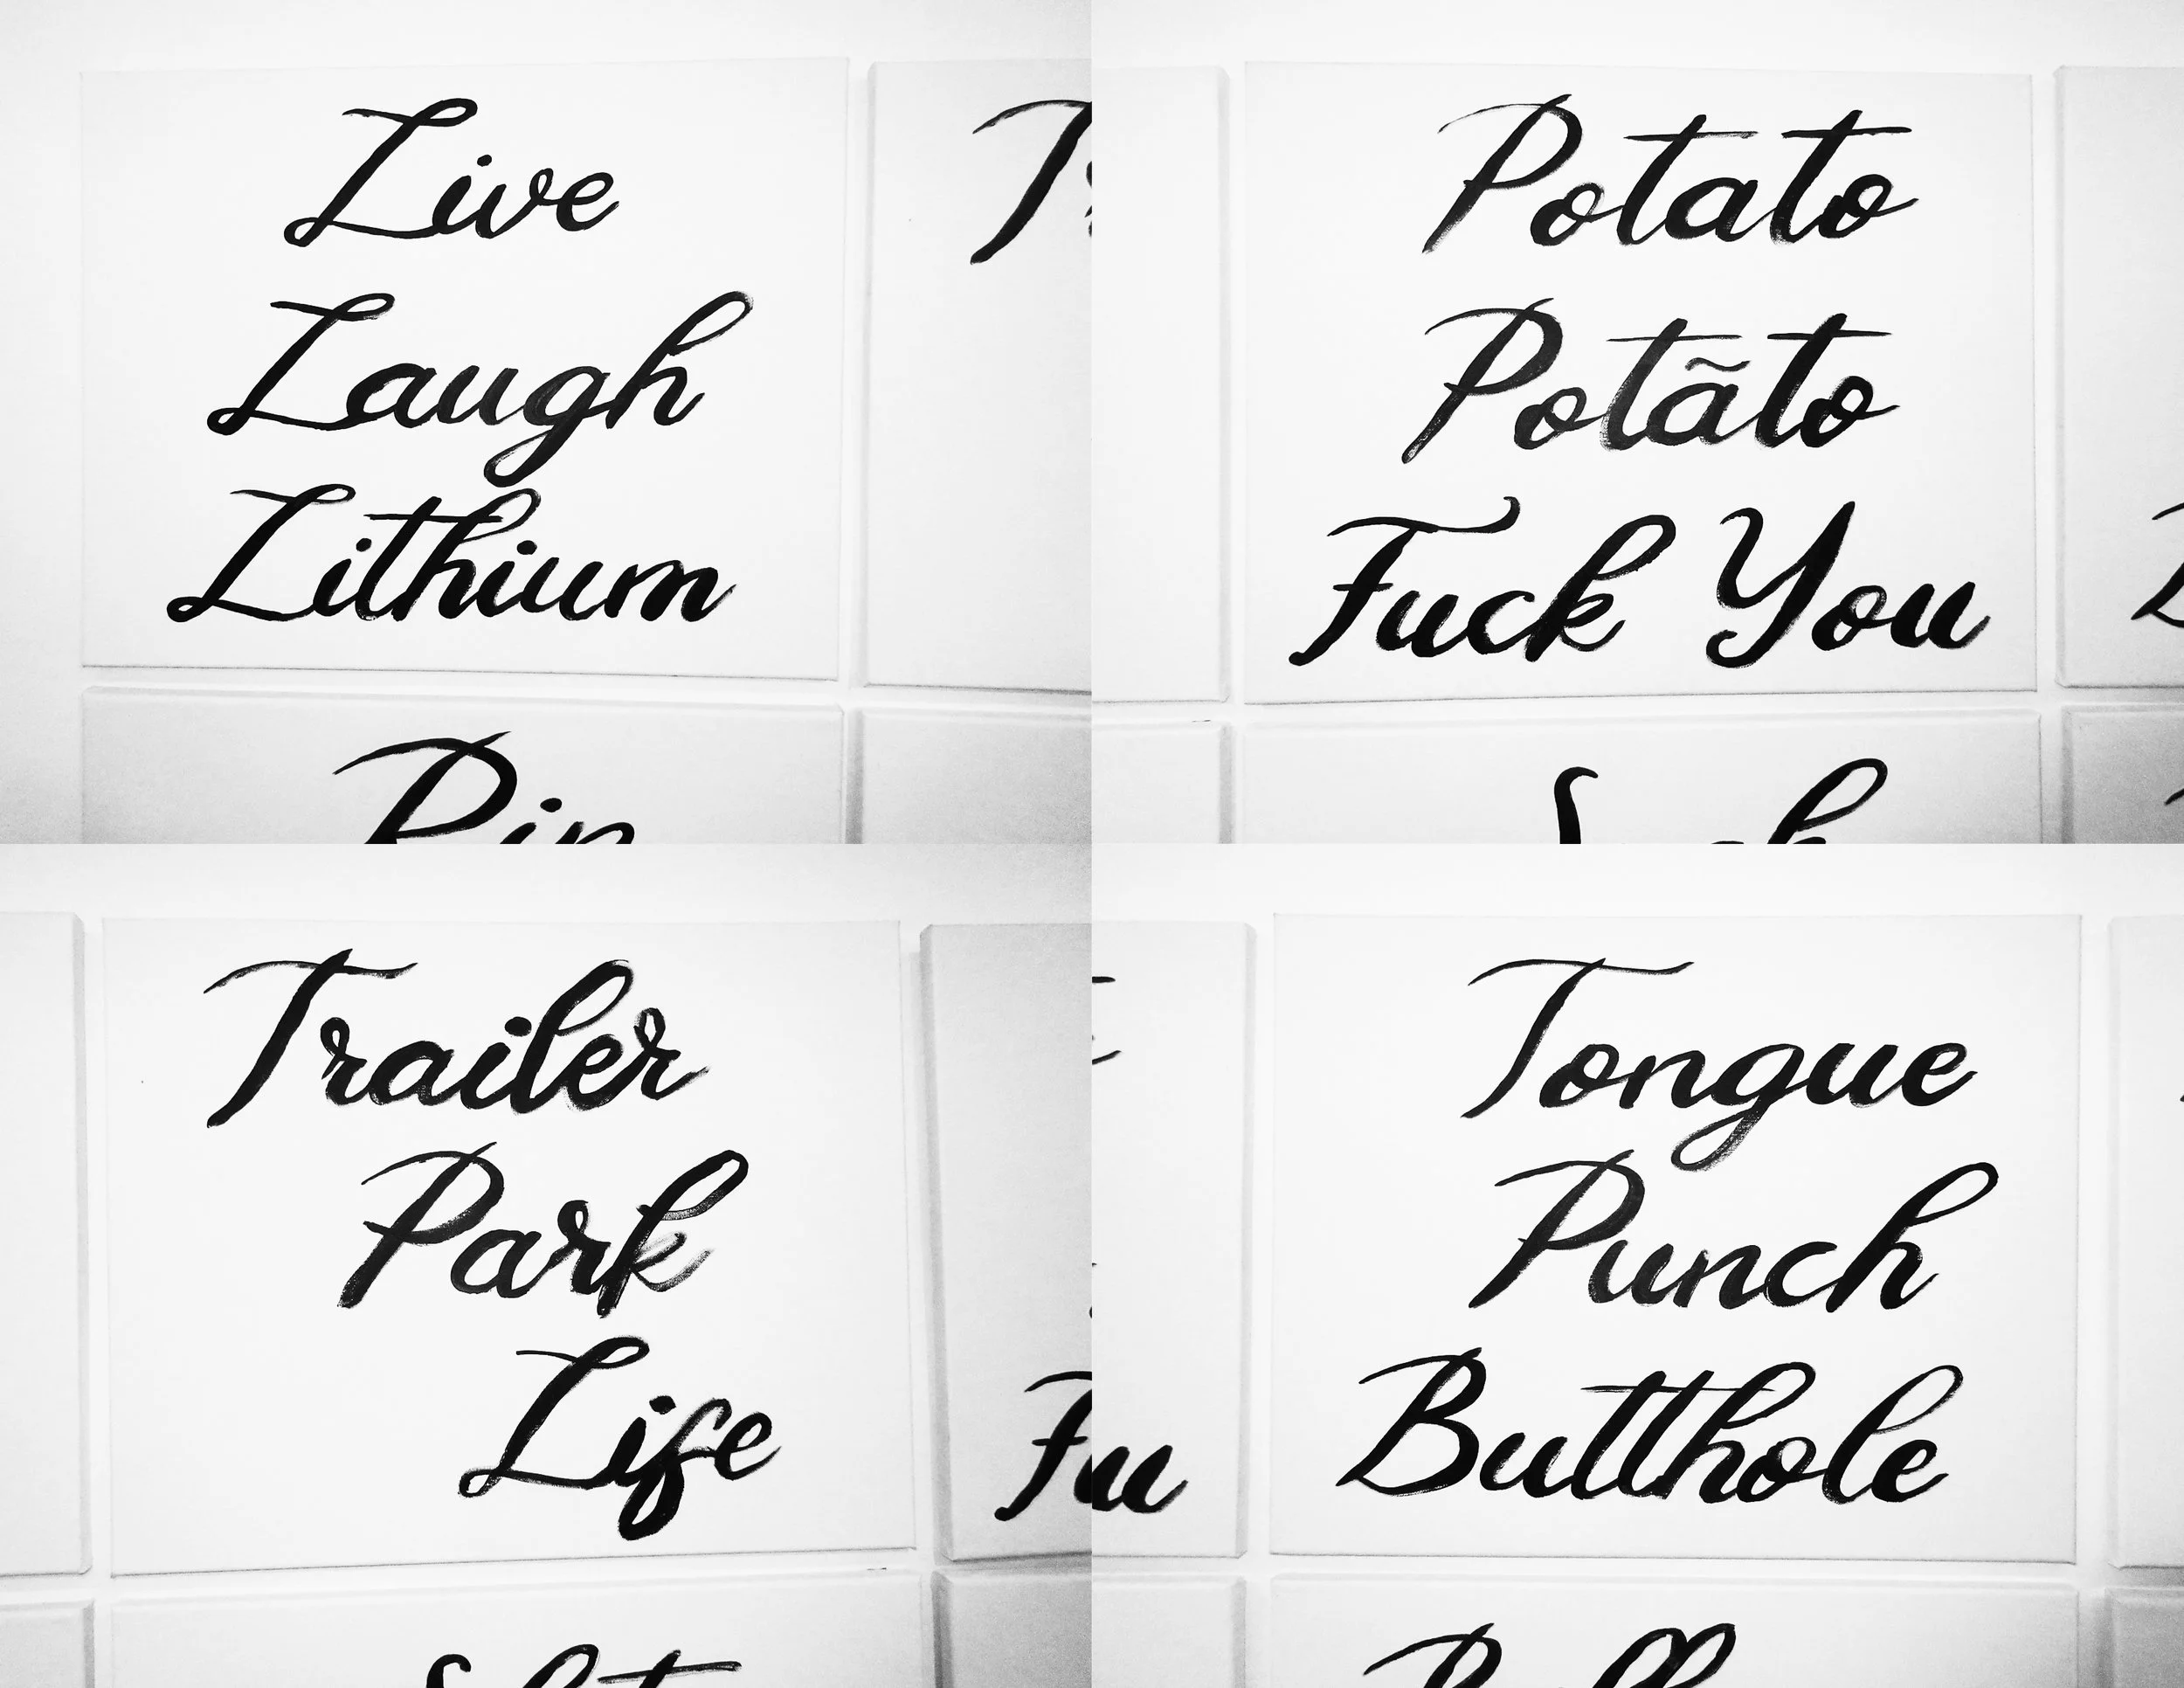 Live
Laugh
Lithium
Potato
Potãto
Fuck You
Trailer
Park
Life
Fu
Tongue
Punch
Butthole